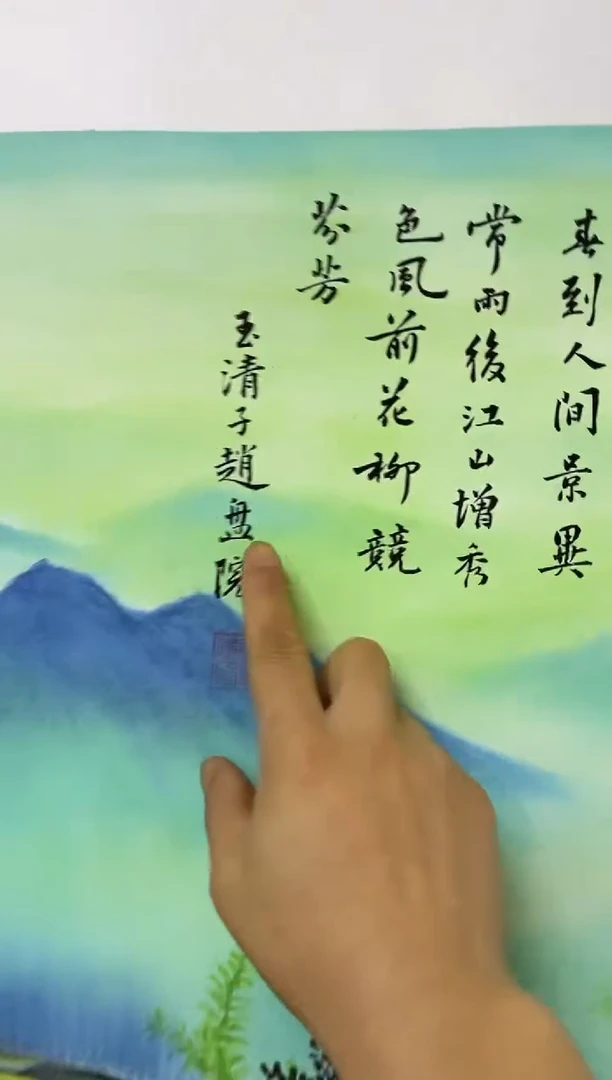 春到人间景異
常雨後江山增秀
色風前花柳競
芬芳
玉清子趙盘院